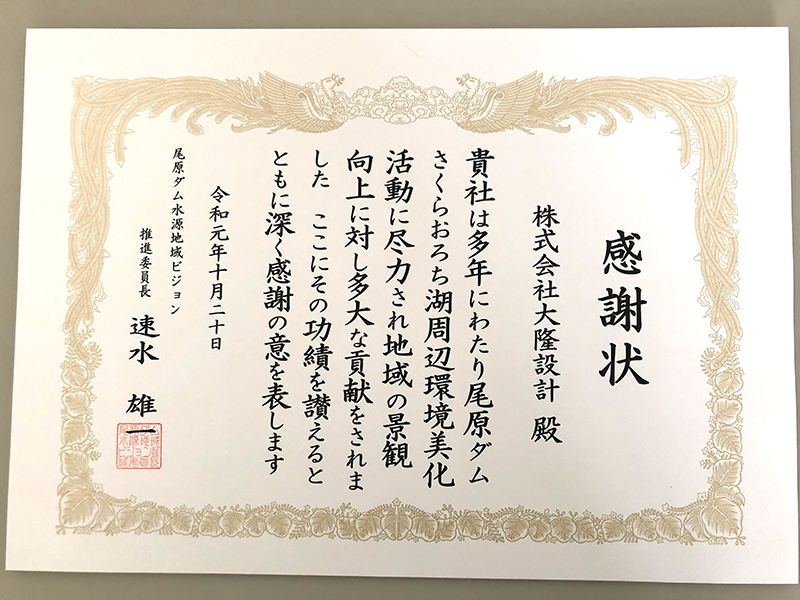 感謝状
株式会社大隆設計 殿
貴社は多年にわたり尾原ダム
さくらおろち湖周辺環境美化
活動に尽力され地域の景観
向上に対し多大な貢献をされま
した ここにその功績を讃えると
ともに深く感謝の意を表します
令和元年十月二十日
尾原ダム水源地域ビジョン
推進委員長 速水 雄一